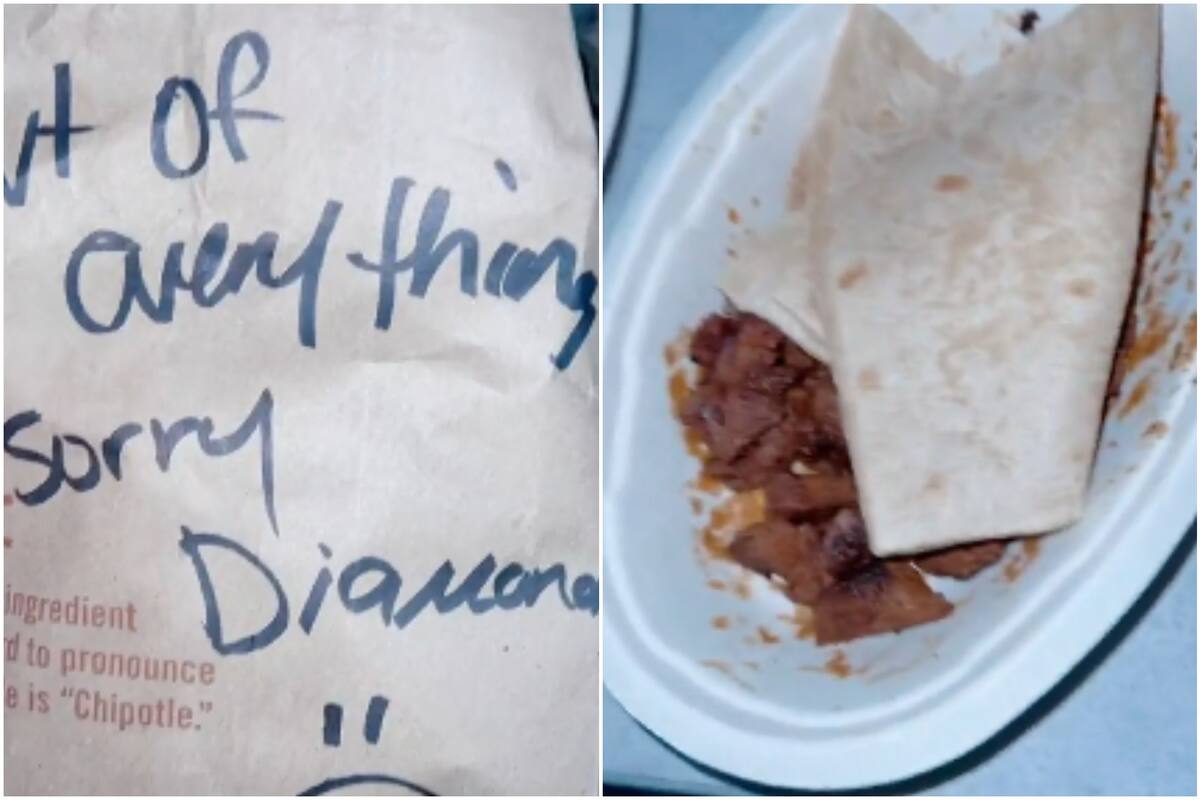 of
everything
sorry
Diamond
ingredient
to pronounce
is “Chipotle.”